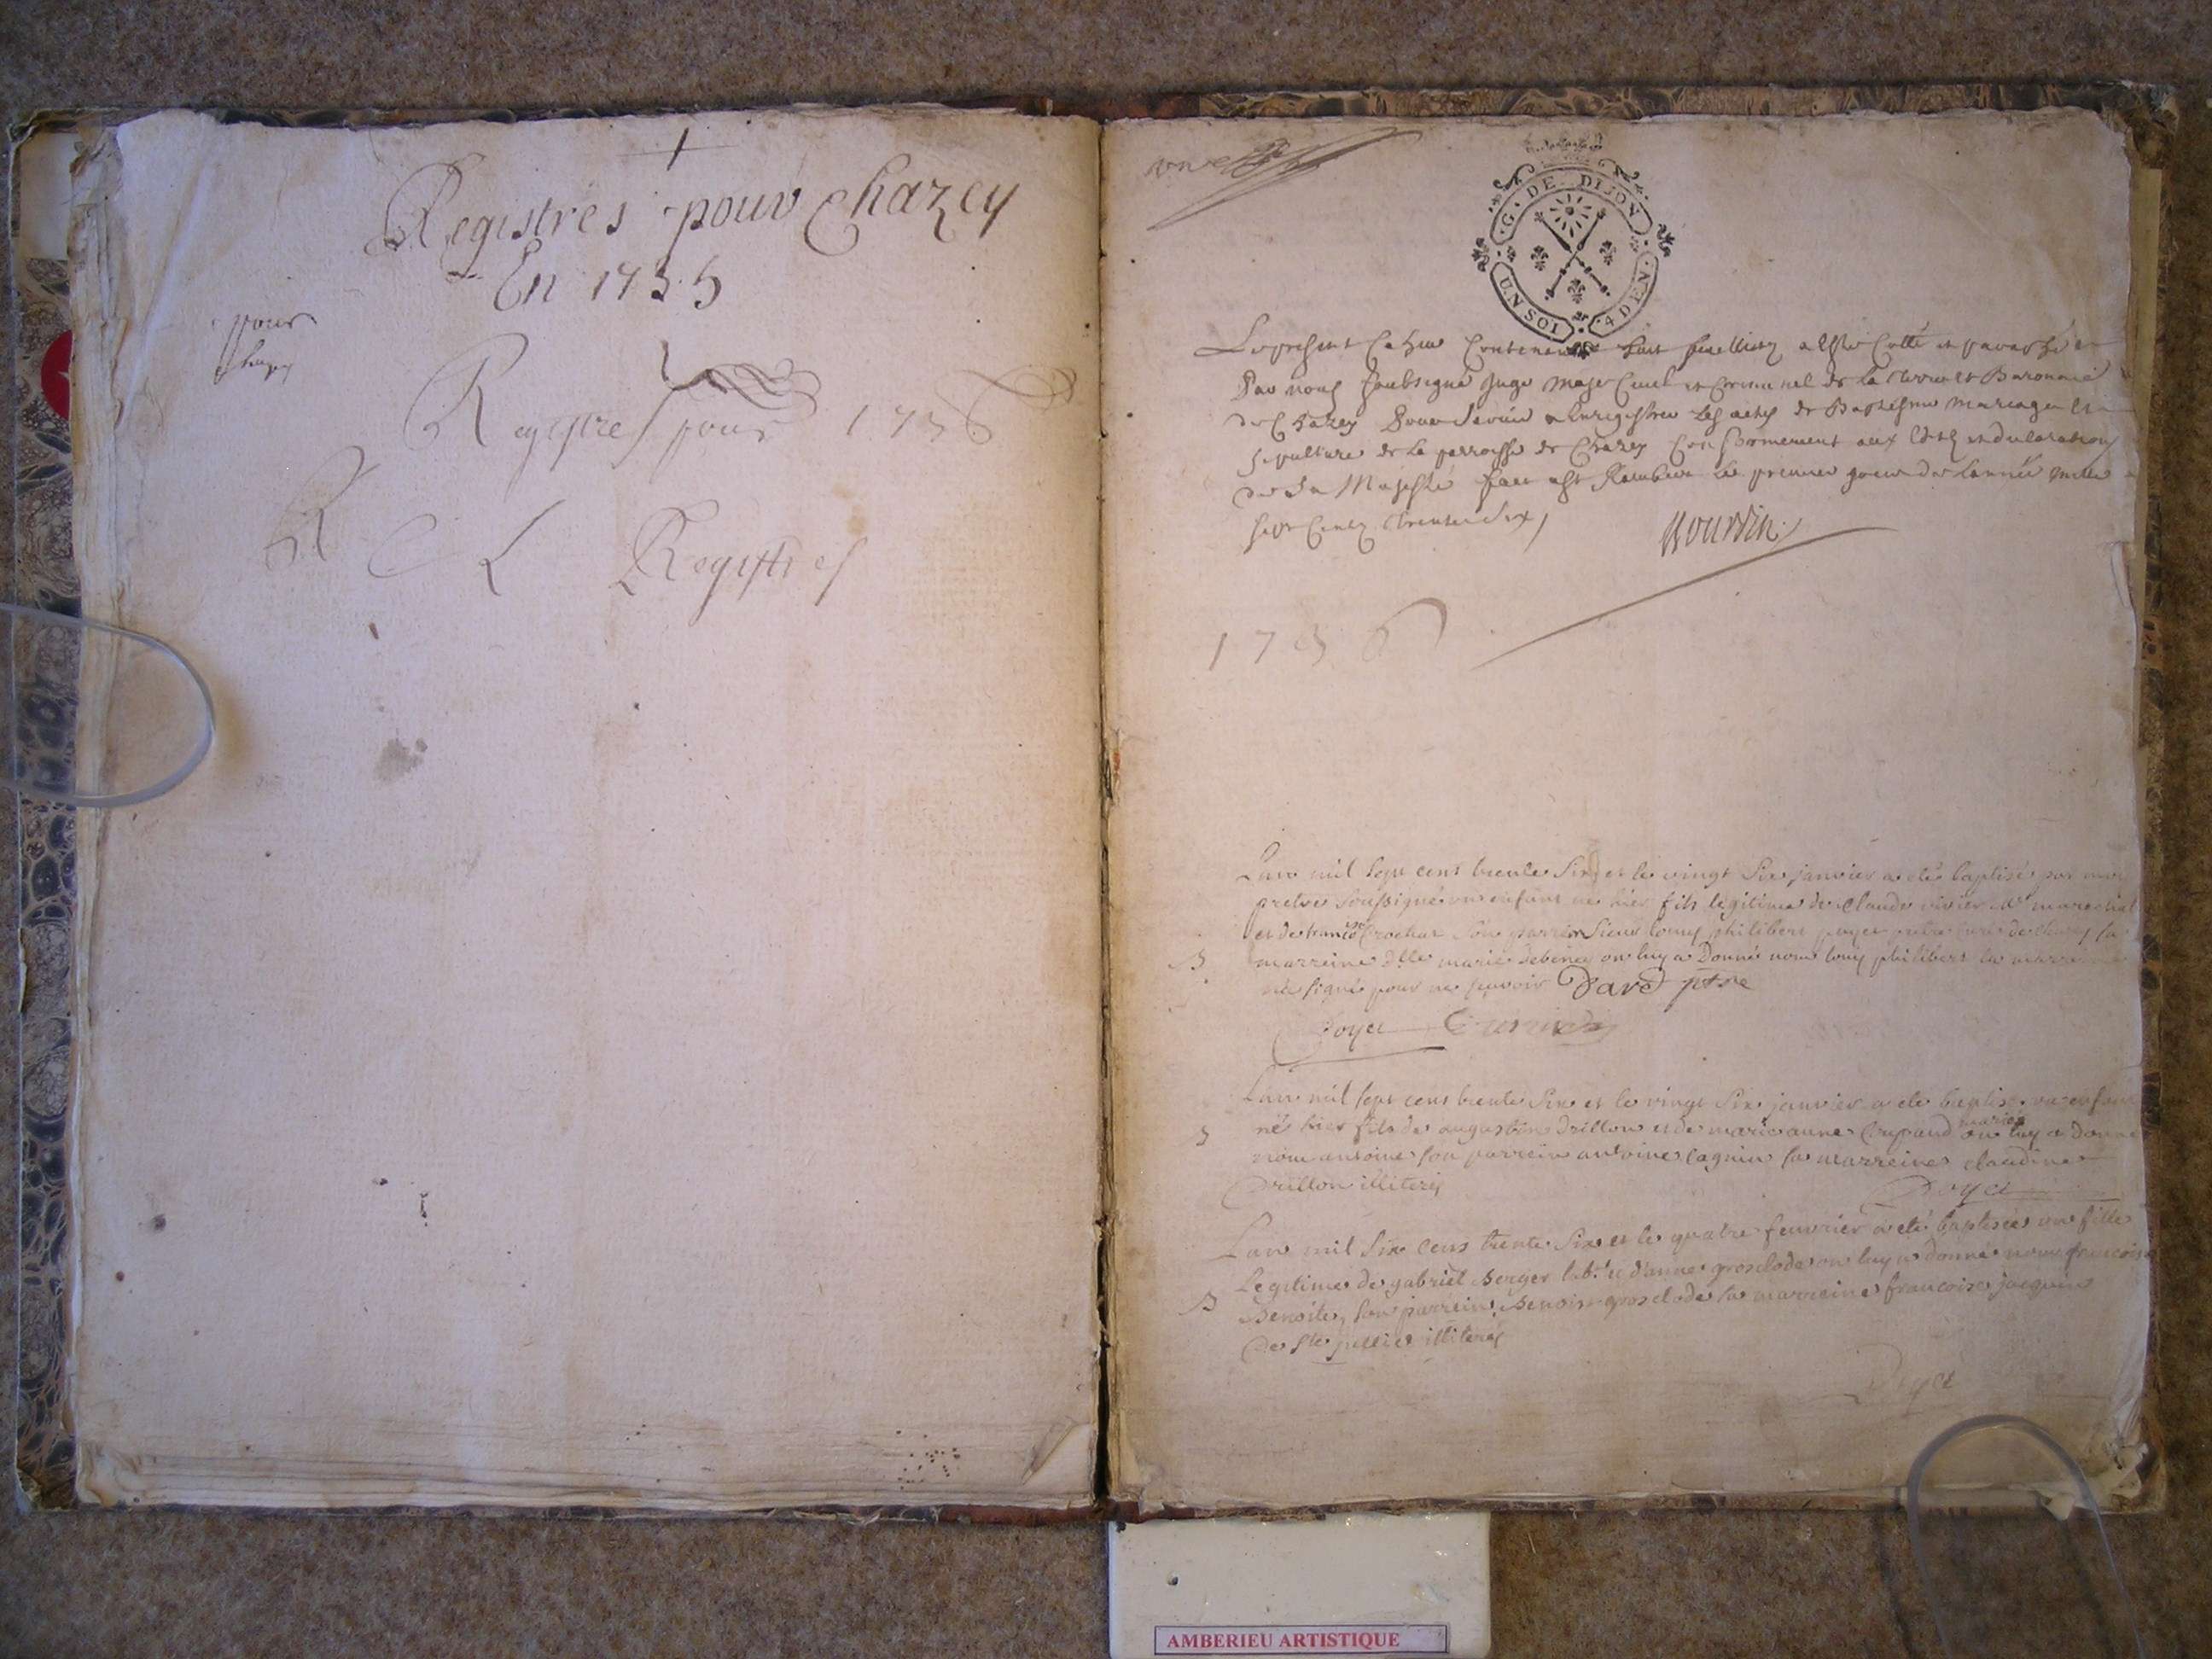 Registres pour Chazey
En 1735
pour
Registres pour 1736
R
Registres
G. DE DIJON
UN SOL
4 DEN
Le present Cahier Contenant huit feuilletz a esté Cotté et paraphé
Par nous soubsigné Juge Maje Civil et Criminel de la Terre et Baronnie
de Chazey Pour servir a Enregistrer les actes de Baptesme mariage et
sepulture de la parroisse de Chazey Conformement aux Edits et declarations
de Sa Majesté fait a St Rambert le premier jour de l'année mille
sept Centz trente six
1736
L'an mil sept cens trente six et le vingt six janvier a eté baptisé par moy
pretre soussigné un enfant né hier fils legitime de Claude vivier me marechal
et de Crochat son parrein Sieur louis philibert poyet pretre curé de Chazey sa
B marreine dlle marie debeney on luy a Donné nom louis philibert la marreine
n'a signé pour ne sçavoir Dare ptre
Poyet
L'an mil sept cens trente six et le vingt six janvier a eté baptisé un enfant
né hier fils de augustin Drillon et de marie anne mariés on luy a donné
nom antoine son parrein antoine Cagnin sa marreine claudine
Drillon illiterés
Poyet
L'an mil six cens trente six et le quatre feuvrier a eté baptisée une fille
Legitime de gabriel Berger labr et d'anne grosclode on luy a donné nom francoise
B Benoite, son parrein Benoist grosclode sa marreine francoise jacquin
De Ste jullie illiterés
Poyet
AMBERIEU ARTISTIQUE